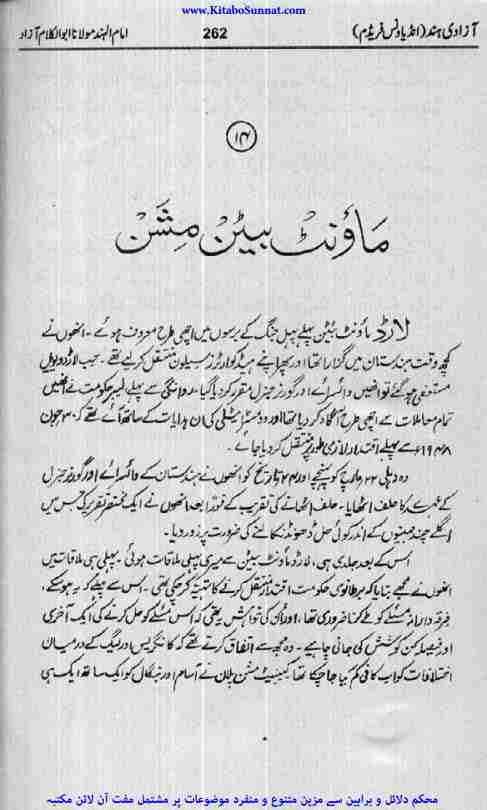 www.KitaboSunnat.com
آزادی ہند (انڈیا ونس فریڈم) 262 امام الہند مولانا ابوالکلام آزاد
۱۴
ماؤنٹ بیٹن مِشن
لارڈ ماؤنٹ بیٹن پہلے پہل جنگ کے برسوں میں اچھی طرح معروف ہوئے۔ انھوں نے
کچھ وقت ہندستان میں گزارا تھا اور پھر اپنے ہیڈ کوارٹرز سیلون منتقل کر لیے تھے۔ جب لارڈ ویول
مستعفی ہو گئے تو انھیں وائسرائے اور گورنر جنرل مقرر کر دیا گیا۔ روانگی سے پہلے لیبر حکومت نے انھیں
تمام معاملات سے اچھی طرح آگاہ کر دیا تھا اور وہ مسٹر ایٹلی کی ان ہدایات کے ساتھ آئے تھے کہ ۳۰ جون
۱۹۴۸ء سے پہلے اقتدار لازمی طور پر منتقل کر دیا جائے۔
وہ دہلی ۲۲ مارچ کو پہنچے اور ۲۴ تاریخ کو انھوں نے ہندستان کے وائسرائے اور گورنر جنرل
کے عہدے کا حلف اٹھایا۔ حلف اٹھانے کی تقریب کے فوراً بعد انھوں نے ایک مختصر تقریر کی جس میں
اگلے چند مہینوں کے اندر کوئی حل ڈھونڈ نکالنے کی ضرورت پر زور دیا۔
اس کے بعد جلد ہی، لارڈ ماؤنٹ بیٹن سے میری پہلی ملاقات ہوئی۔ پہلی ہی ملاقات میں
انھوں نے مجھے بتایا کہ برطانوی حکومت اقتدار منتقل کرنے کا تہیّہ کر چکی تھی۔ اس سے پہلے کہ یہ ہو سکے،
فرقہ وارانہ مسئلے کو طے کرنا ضروری تھا، اور اُن کی خواہش یہ تھی کہ اس مسئلے کو حل کرنے کی ایک آخری
اور فیصلہ کن کوشش کی جانی چاہیے۔ وہ مجھ سے اتفاق کرتے تھے کہ کانگریس اور لیگ کے درمیان
اختلافات کو اب کافی کم کیا جا چکا تھا۔ کیبینیٹ مشن پلان نے آسام اور بنگال کو ایک ساتھ ایک ہی
محکم دلائل و براہین سے مزین متنوع و منفرد موضوعات پر مشتمل مفت آن لائن مکتبہ